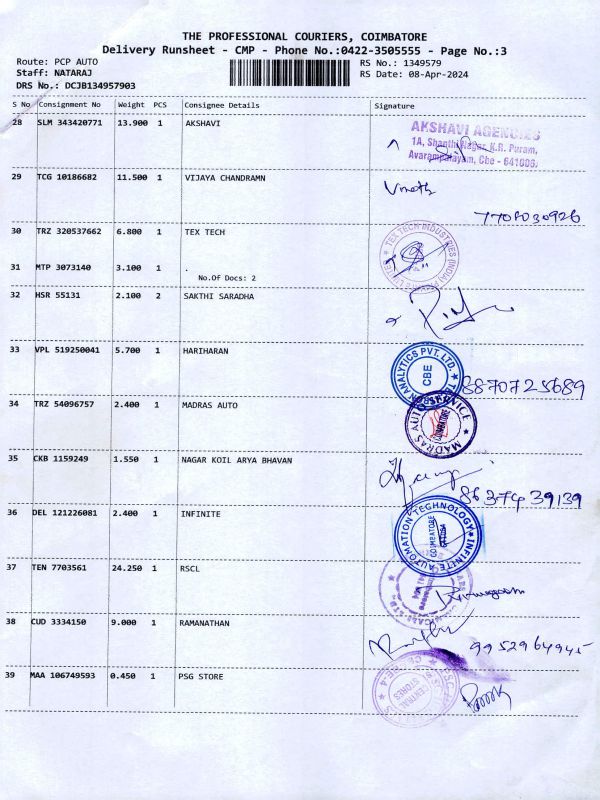 THE PROFESSIONAL COURIERS, COIMBATORE
Delivery Runsheet - CMP - Phone No.:0422-3505555 - Page No.:3
Route: PCP AUTO
RS No.: 1349579
Staff: NATARAJ
RS Date: 08-Apr-2024
DRS No.: DCJB134957903
S No Consignment No Weight PCS Consignee Details Signature
28 SLM 343420771 13.900 1 AKSHAVI
AKSHAVI AGENCIES
1A, Shanthi Nagar, K.R. Puram,
Avarampalayam, Cbe - 641006.
29 TCG 10186682 11.500 1 VIJAYA CHANDRAMN
7708030926
30 TRZ 320537662 6.800 1 TEX TECH
TEX TECH INDUSTRIES (INDIA) PRIVATE LIMITED
31 MTP 3073140 3.100 1 .
No.Of Docs: 2
32 HSR 55131 2.100 2 SAKTHI SARADHA
33 VPL 519250041 5.700 1 HARIHARAN
ANALYTICS PVT. LTD.
CBE
8870725689
34 TRZ 54096757 2.400 1 MADRAS AUTO
MADRAS AUTO SERVICE
35 CKB 1159249 1.550 1 NAGAR KOIL ARYA BHAVAN
8637439139
36 DEL 121226081 2.400 1 INFINITE
INFINITE AUTOMATION TECHNOLOGY
COIMBATORE
37 TEN 7703561 24.250 1 RSCL
38 CUD 3334150 9.000 1 RAMANATHAN
9952964945
39 MAA 106749593 0.450 1 PSG STORE
CENTRAL
STORES